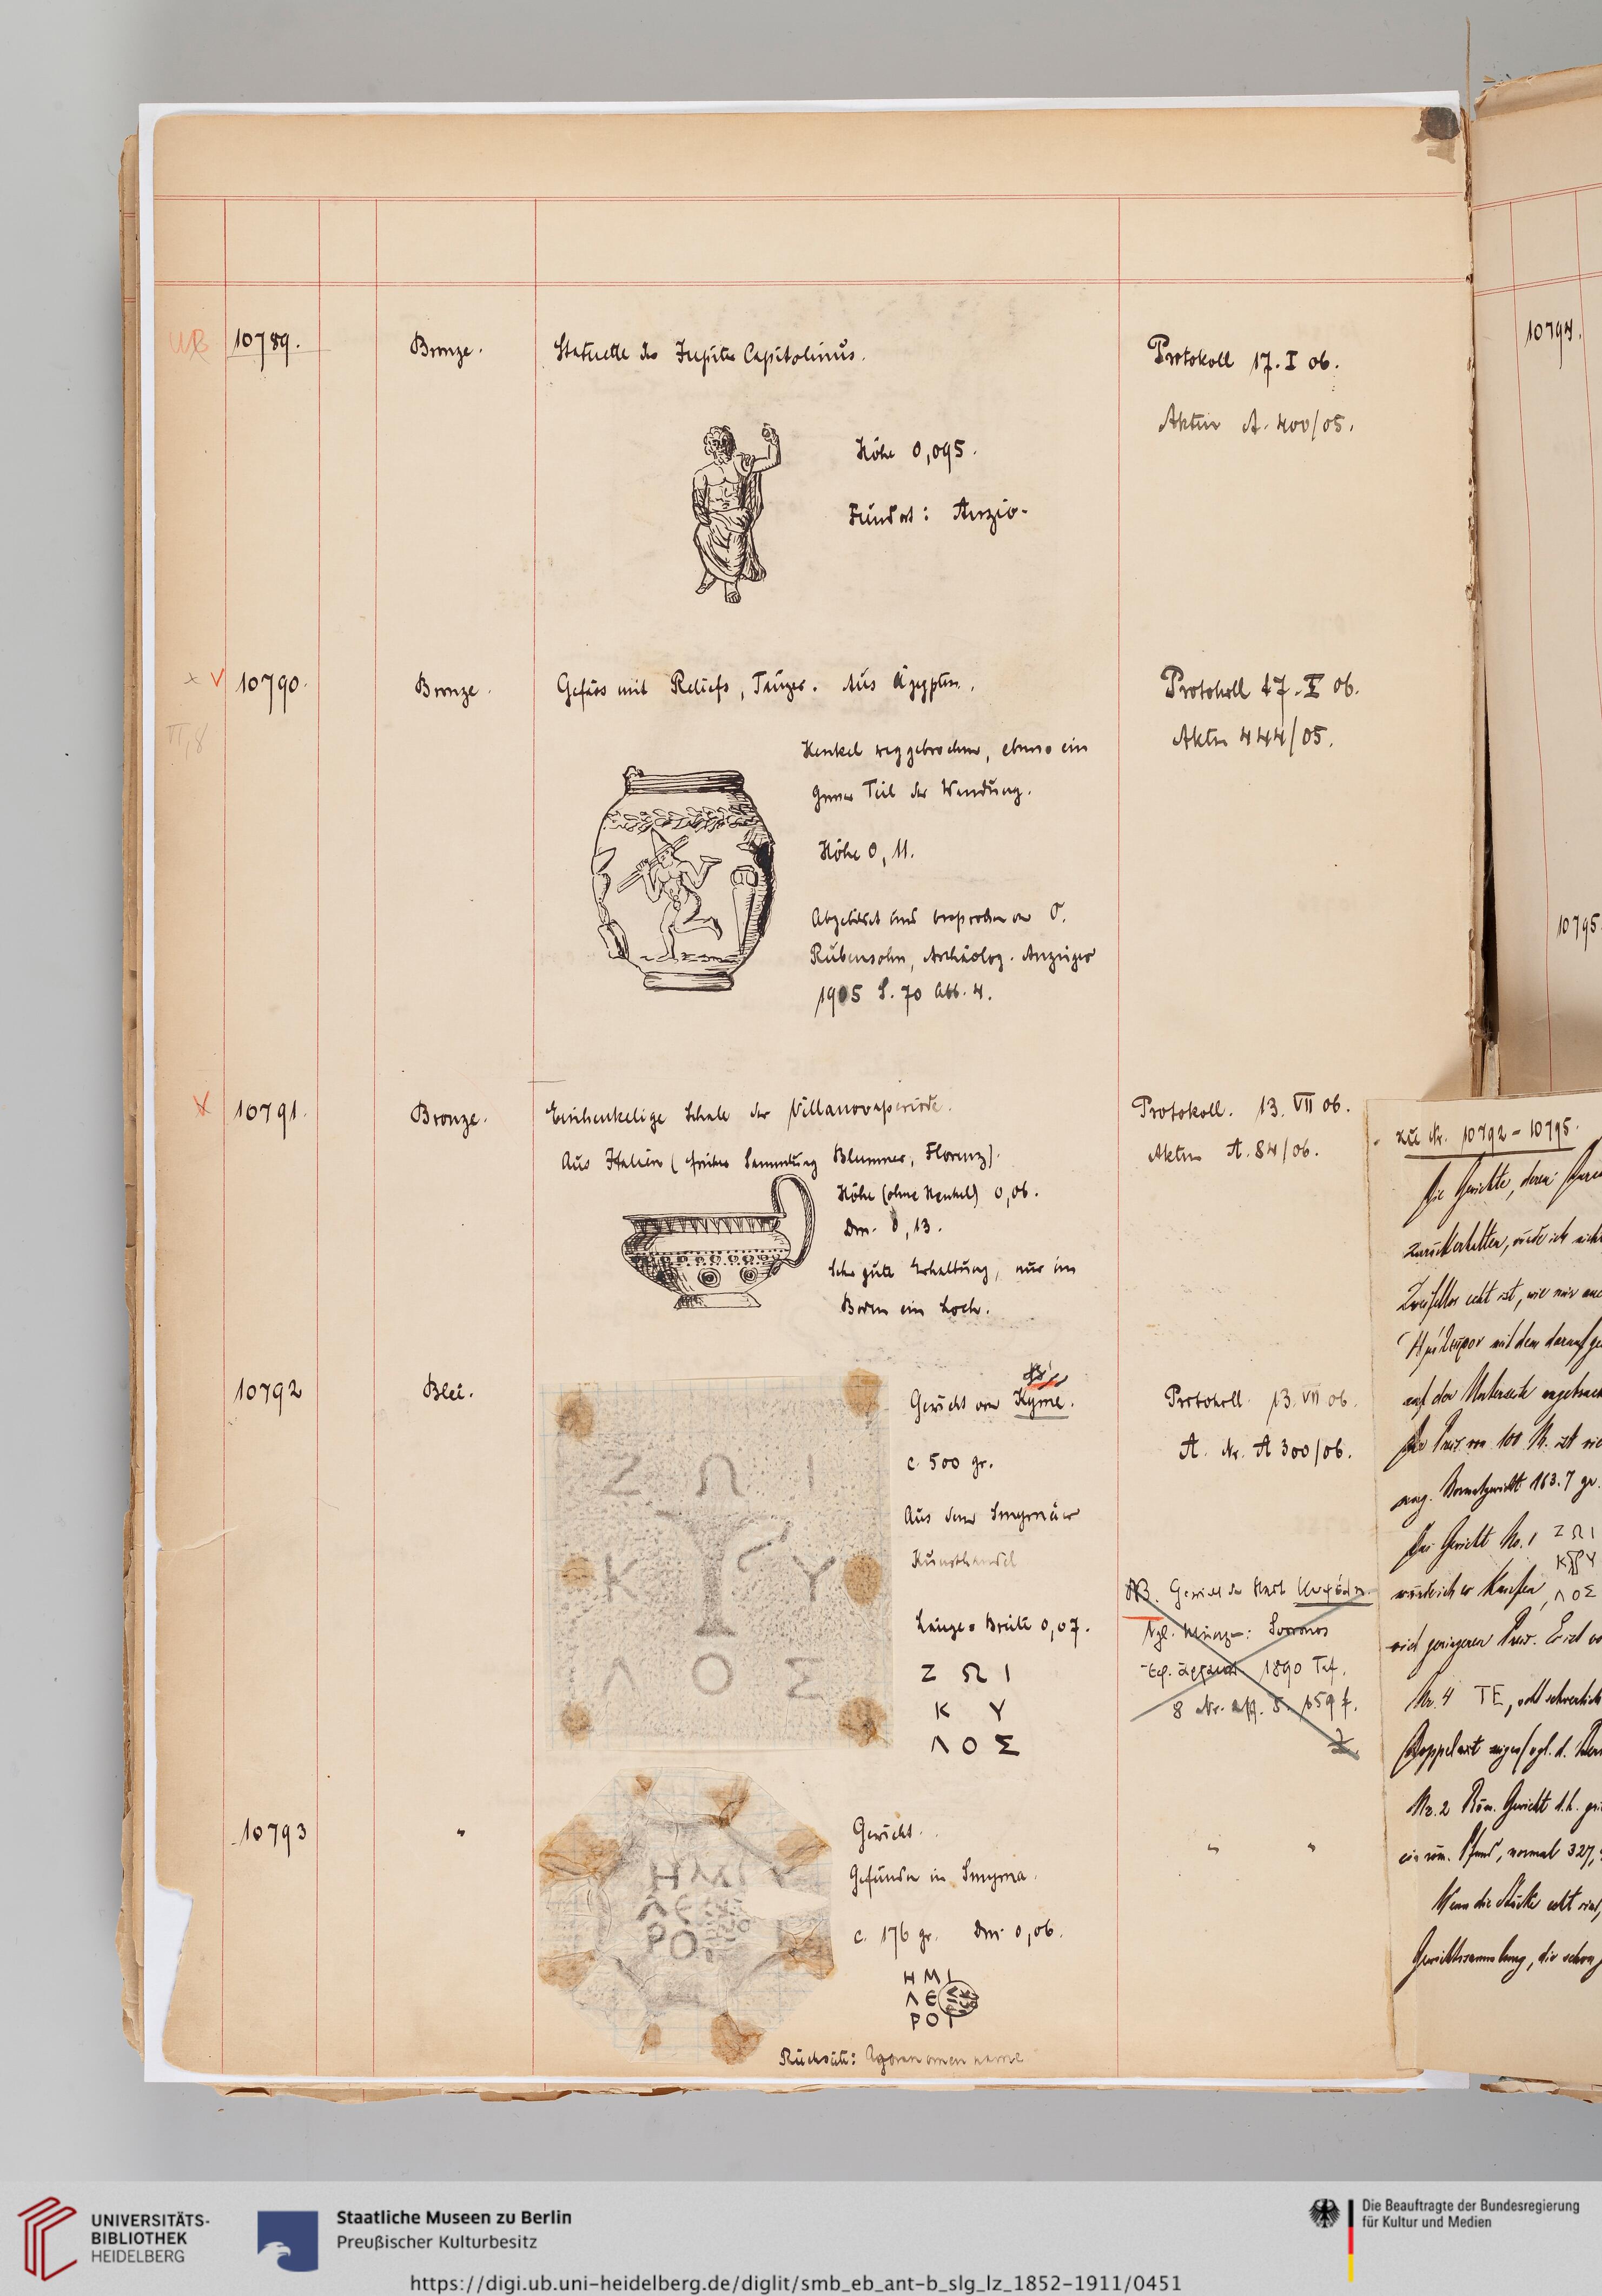 10789.
Bronze.
Statuette des Jupiter Capitolinus.
Protokoll 17. I 06.
Akten A. 400/05.
Höhe 0,095.
Fundort: Anzio.
10790.
Bronze.
Gefäss mit Reliefs, Tänzer. Aus Ägypten.
Protokoll 17. I 06.
Akten 444/05.
Henkel weggebrochen, ebenso ein
grosser Teil der Wandung.
Höhe 0,11.
Abgebildet und besprochen von O.
Rubensohn, Archäolog. Anzeiger
1905 S. 70 Abb. 4.
10791.
Bronze.
Einhenkelige Schale der Villanovaperiode.
Aus Italien (früher Sammlung Blummer, Florenz).
Protokoll. 13. VII 06.
Akten A. 84/06.
Höhe (ohne Henkel) 0,06.
Dm. 0,13.
Sehr gute Erhaltung, nur im
Boden ein Loch.
10792
Blei.
Ζ Ω Ι
Κ Υ
Λ Ο Σ
Gewicht von Kyme.
c. 500 gr.
Aus dem Smyrnäer
Kunsthandel
Länge = Breite 0,07.
Ζ Ω Ι
Κ Υ
Λ Ο Σ
Protokoll 13. VII 06.
A. Nr. A 300/06.
NB. Gewicht der Stadt
Vgl. Münzen: Svoronos
1890 Taf.
10793
"
ΗΜΙ
ΛΕ
ΡΟ
Gewicht.
Gefunden in Smyrna.
c. 176 gr. Dm 0,06.
ΗΜΙ
ΛΕ
ΡΟΙ
Rückseite: Agoranomenname
" "
10794.
10795.
zu Nr. 10792 – 10795.
Die Gewichte, deren
zurückerhalten, würde ich
Zweifellos echt ist, wie mir
mit dem darauf
auf der Unterseite
Der Preis von 100 M. ist
Normalgewicht 163.7 gr.
Das Gewicht No. 1 Ζ Ω Ι
Κ Υ
würde ich er kaufen, Λ Ο Σ
geringeren Preis. Er ist
Nr. 4 ΤΕ,
Doppelaxt
Nr. 2 Röm. Gewicht d.h.
ein röm. Pfund, normal 327,
Wenn die Stücke echt sind,
Gewichtssammlung, die schon
UNIVERSITÄTS-
BIBLIOTHEK
HEIDELBERG
Staatliche Museen zu Berlin
Preußischer Kulturbesitz
Die Beauftragte der Bundesregierung
für Kultur und Medien
https://digi.ub.uni-heidelberg.de/diglit/smb_eb_ant-b_slg_lz_1852-1911/0451